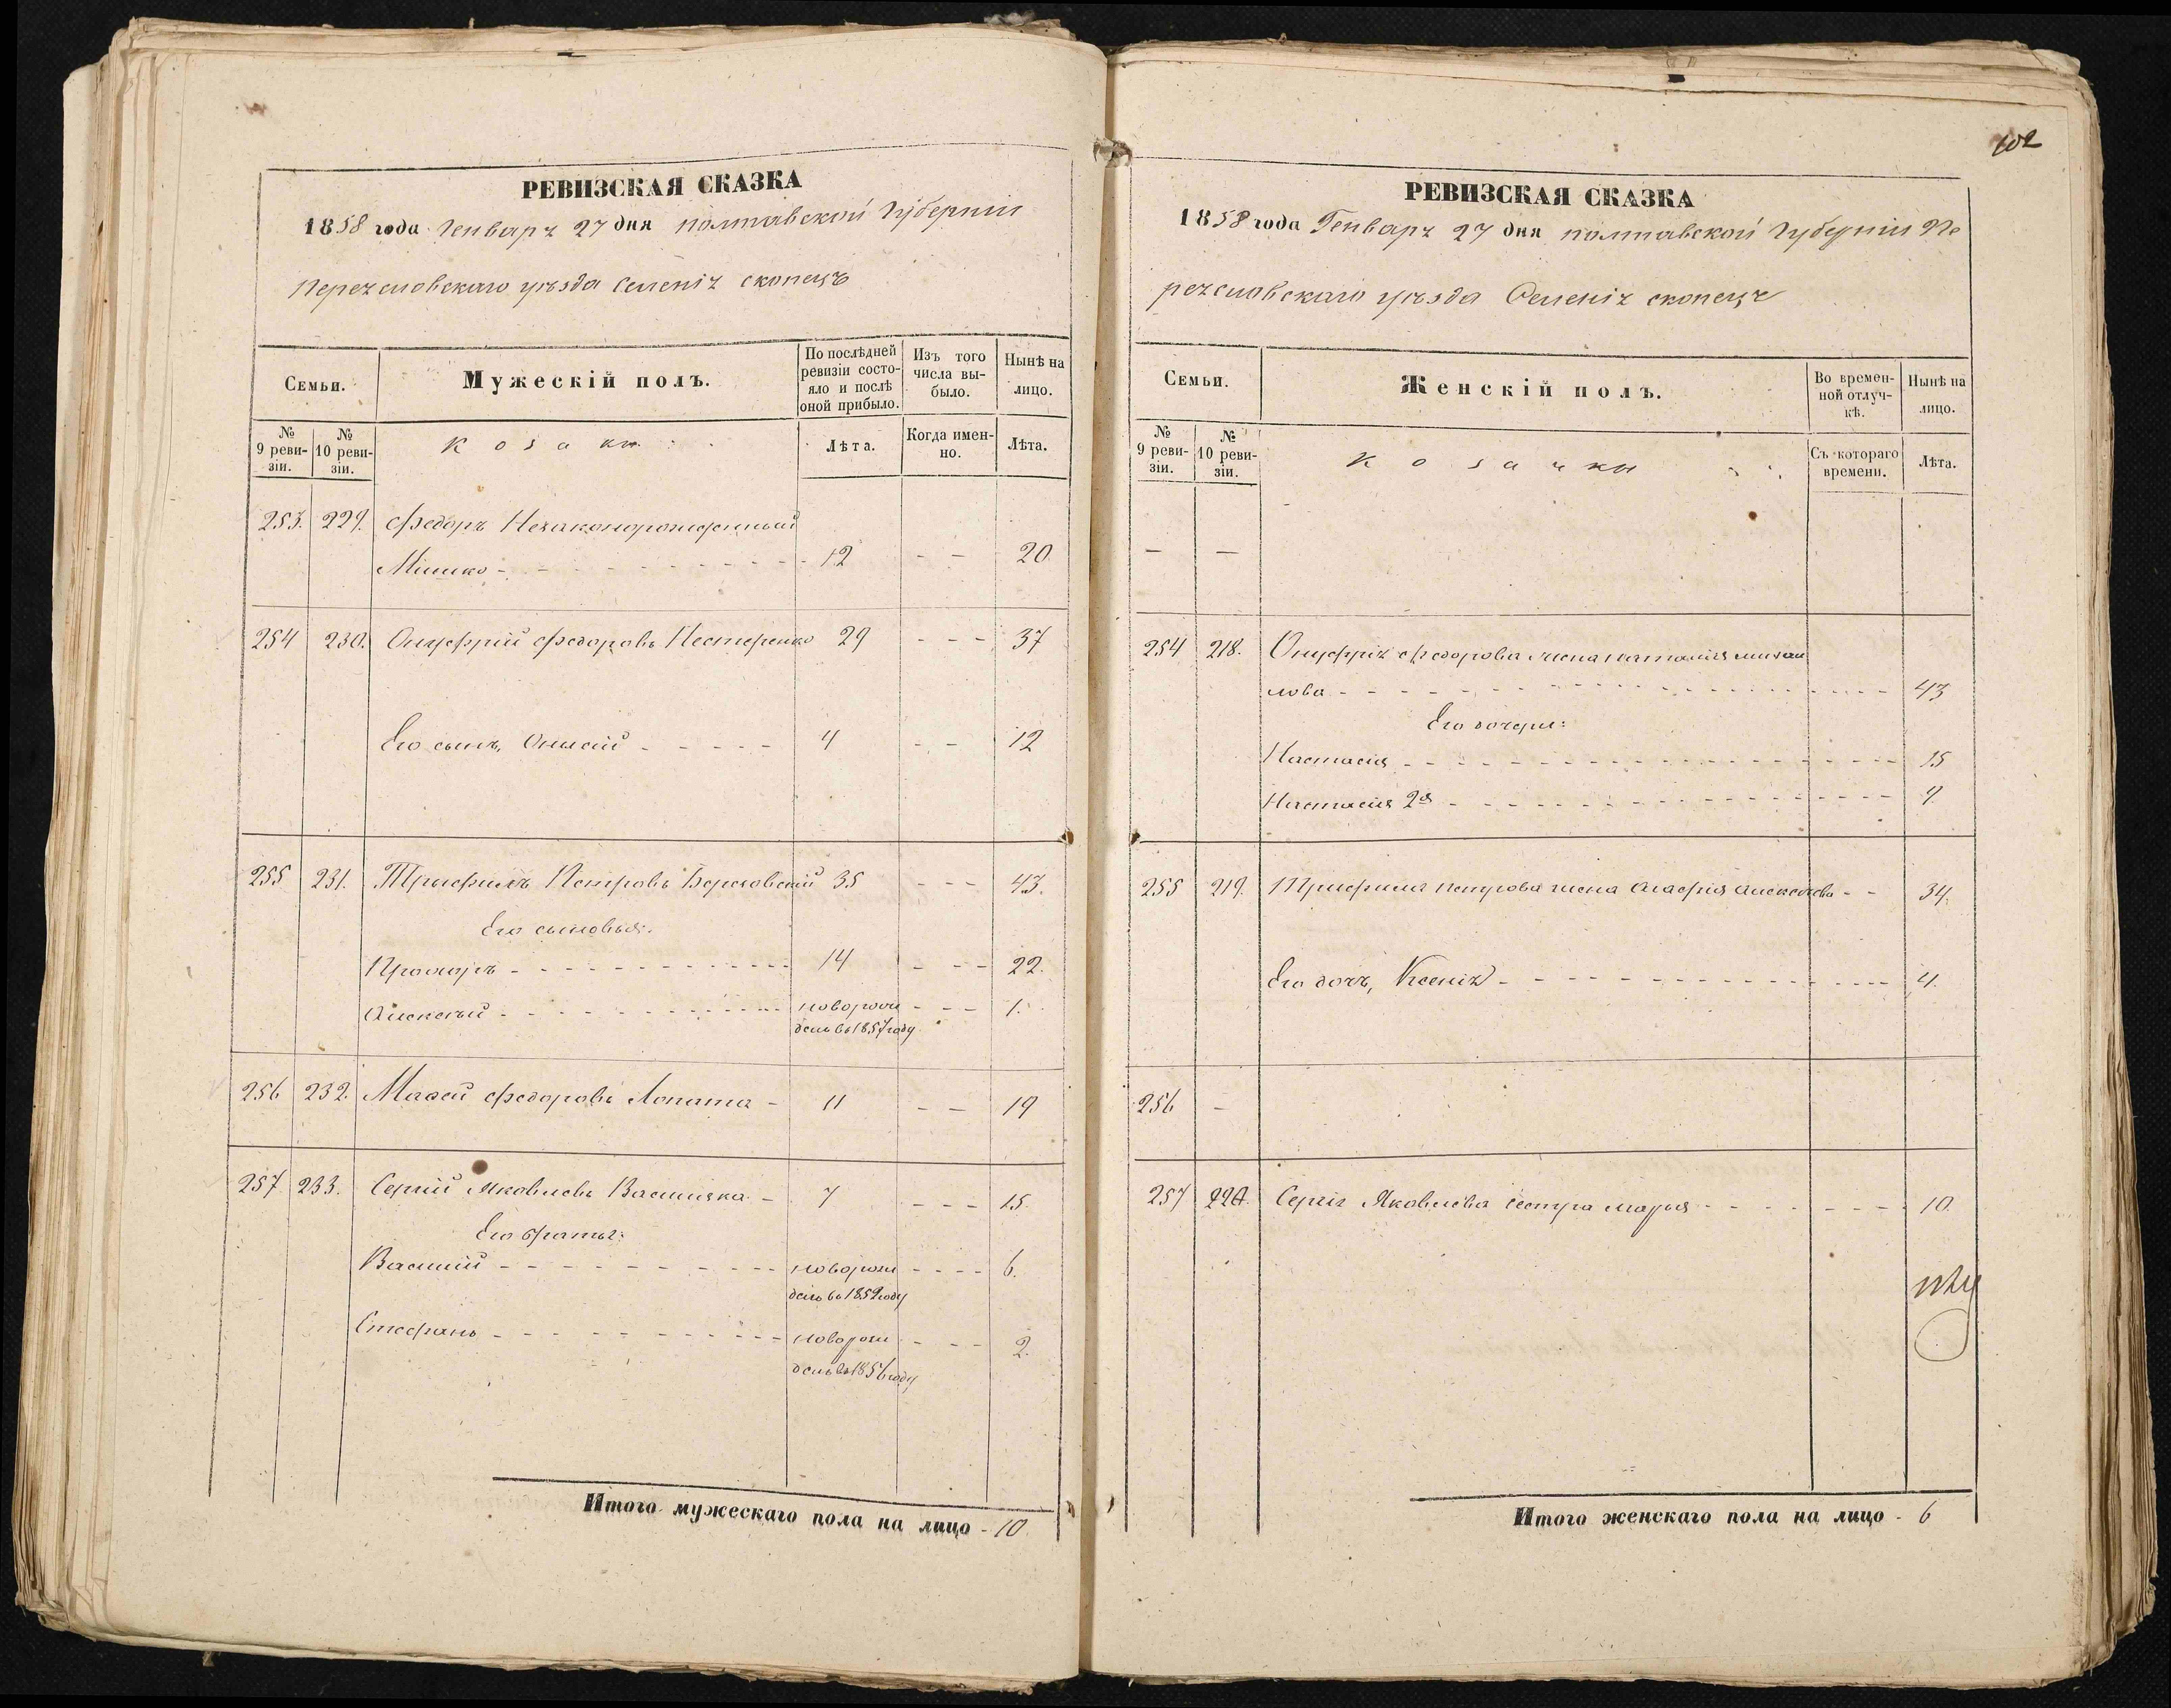 РЕВИЗСКАЯ СКАЗКА
1858 года Генваря 27 дня полтавской Губернии
Переяславскаго уѣзда Селенія скопецъ
Семьи.
Мужескій полъ.
По послѣдней ревизіи состояло и послѣ оной прибыло.
Изъ того числа выбыло.
Нынѣ на лицо.
№ 9 ревизіи.
№ 10 ревизіи.
Козаки
Лѣта.
Когда именно.
Лѣта.
253. 229. Федоръ Незаконорожденный
12 - - 20
254 230. Онуфрий Федоровъ Нестеренко 29 - - - 37
Его сынъ, Онисий - - - - - 4 - - 12
255 231. Трифилъ Петровъ 35 - - - 43.
Его сыновья:
Прохоръ - - - 14 - - - 22.
Алексѣй - - - новорож - - - 1.
денъ въ 1857 году
256 232. Мосей Федоровъ Лопата - 11 - - 19
257. 233. Сергий Яковлевъ - 7 - - - 15.
Его братья:
Василий - - - новорож - - - - 6.
денъ въ 1852 году
Стефанъ - - - новорож - - - 2.
денъ въ 1856 году
Итого мужескаго пола на лицо - 10.
102
РЕВИЗСКАЯ СКАЗКА
1858 года Генваря 27 дня полтавской Губерніи Пе
реяславскаго уѣзда Селенія скопецъ
Семьи.
Женскій полъ.
Во временной отлучкѣ.
Нынѣ на лицо.
№ 9 ревизіи.
№ 10 ревизіи.
Козачки
Съ котораго времени.
Лѣта.
— —
254 218. Онуфрія Федорова жена Наталия михаи
лова - - - 43
Его дочери:
Настасия - - - 15
Настасия 2я - - - 9.
255 219. Трифила петрова жена Агафия алексѣева - - 34.
Его дочь, Ксения - - - 4.
256 —
257 220. Сергія Яковлева сестра марья - - - 10.
Итого женскаго пола на лицо - 6